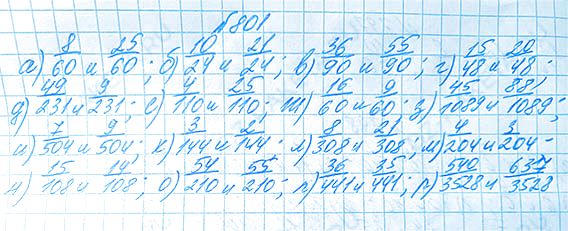 №801
а) 8/60 и 25/60; б) 10/24 и 21/24; в) 36/90 и 55/90; г) 15/48 и 20/48;
д) 49/231 и 9/231; е) 4/110 и 25/110; ж) 16/60 и 9/60; з) 45/1089 и 88/1089;
и) 7/504 и 9/504; к) 3/144 и 2/144; л) 8/308 и 21/308; м) 4/204 и 3/204;
н) 15/108 и 14/108; о) 54/210 и 55/210; п) 36/441 и 35/441; р) 540/3528 и 637/3528